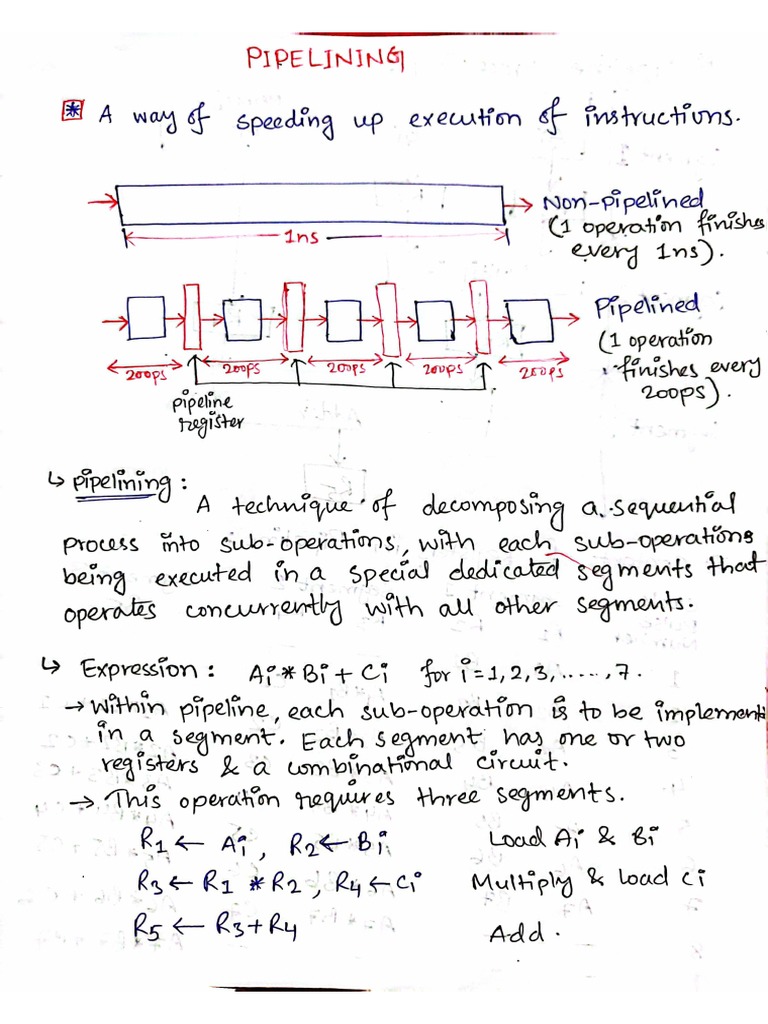 PIPELINING
* A way of speeding up execution of instructions.
Non-pipelined
(1 operation finishes
every 1ns).
1ns
Pipelined
(1 operation
finishes every
200ps).
200ps 200ps 200ps 200ps 200ps
pipeline
register
↳ pipelining:
A technique of decomposing a sequential
process into sub-operations, with each sub-operations
being executed in a special dedicated segments that
operates concurrently with all other segments.
↳ Expression: Ai * Bi + Ci for i = 1, 2, 3, ....., 7.
→ Within pipeline, each sub-operation is to be implement
in a segment. Each segment has one or two
registers & a combinational circuit.
→ This operation requires three segments.
R1 ← Ai, R2 ← Bi Load Ai & Bi
R3 ← R1 * R2, R4 ← Ci Multiply & load Ci
R5 ← R3 + R4 Add.